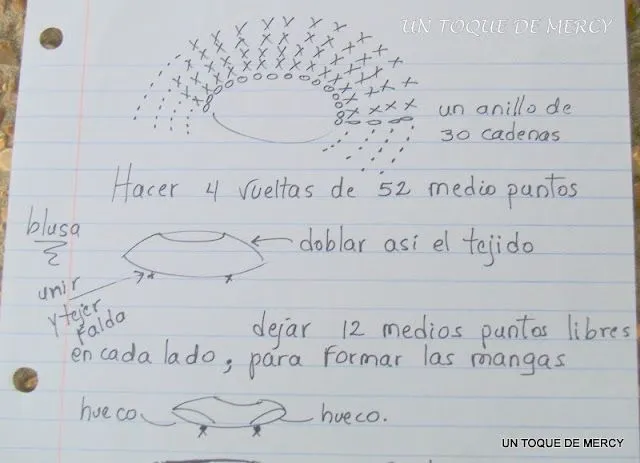 UN TOQUE DE MERCY
un anillo de
30 cadenas
Hacer 4 vueltas de 52 medio puntos
blusa
doblar así el tejido
unir
y tejer
Falda
dejar 12 medios puntos libres
en cada lado, para Formar las mangas
hueco
hueco.
UN TOQUE DE MERCY